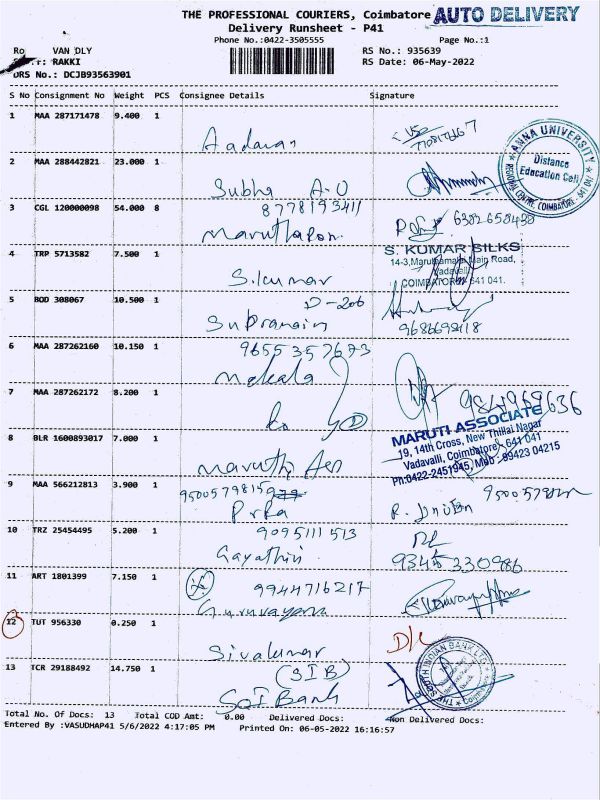 THE PROFESSIONAL COURIERS, Coimbatore AUTO DELIVERY
Delivery Runsheet - P41
Phone No.:0422-3505555 Page No.:1
Ro VAN DLY RS No.: 935639
r: RAKKI RS Date: 06-May-2022
DRS No.: DCJB93563901
S No Consignment No Weight PCS Consignee Details Signature
1 MAA 287171478 9.400 1
Aadavan
2 MAA 288442821 23.000 1
Subha A-O
ANNA UNIVERSITY
Distance
Education Cell
REGIONAL CENTRE, COIMBATORE
3 CGL 120000098 54.000 8 8778193411
6382658438
4 TRP 5713582 7.500 1
S. KUMAR SILKS
14-3, Main Road,
Vadavalli
COIMBATORE 641 041.
S.kumar
5 BOD 308067 10.500 1 D-206
9686699118
6 MAA 287262160 10.150 1 9655357673
Mekala
7 MAA 287262172 8.200 1
9844969636
MARUTI ASSOCIATE
19, 14th Cross, New Thillai Nagar
Vadavalli, Coimbatore 641 041
Ph:0422-2451945, Mob: 89423 04215
8 BLR 1600893017 7.000 1
9 MAA 566212813 3.900 1
9500579815
10 TRZ 25454495 5.200 1 9095111513
Gayathiri
9345330986
11 ART 1801399 7.150 1 9944716217
12 TUT 956330 0.250 1
Sivakumar
D/C
13 TCR 29188492 14.750 1 (SIB)
SOI Bank
THE SOUTH INDIAN BANK LTD.
Total No. Of Docs: 13 Total COD Amt: 0.00 Delivered Docs: Non Delivered Docs:
Entered By :VASUDHAP41 5/6/2022 4:17:05 PM Printed On: 06-05-2022 16:16:57